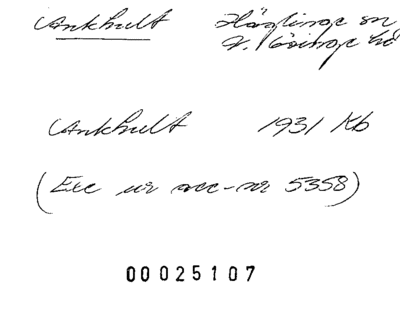 Ankhult Hästinge sn
V. Göinge hd
Ankhult 1931 Kb
(Exc ur acc-nr 5358)
00025107